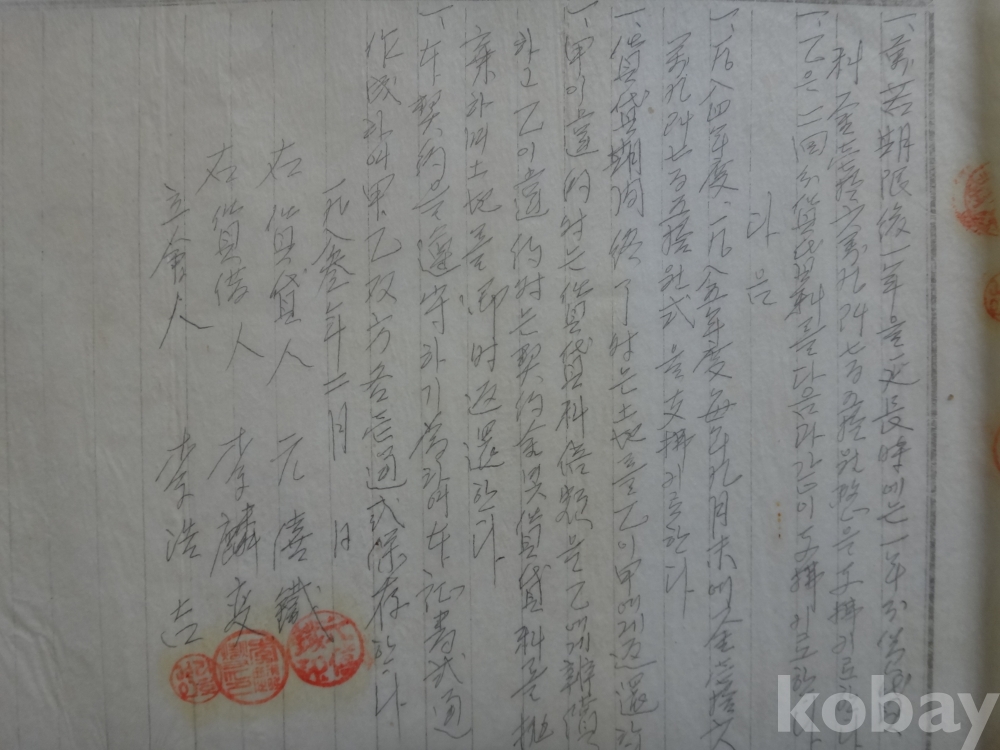 一. 萬若期限後一年을 延長時에는 一年分賃貸
料 金壹拾六萬九仟七百五拾원整을 支拂키로하
一. 乙은 二回分賃貸料를 다음과 같이 支拂키로한다
다음
一九八四年度. 一九八五年度 每年九月末에 金壹拾六
萬九仟七百五拾원式을 支拂키로한다
一. 賃貸期間 終了時는 土地를 乙이 甲에게 返還하
一. 甲이 違約時는 賃貸料倍額을 乙에게 辨償
하고 乙이 違約時는 契約金및 賃貸料를 抛
棄하며 土地를 即時 返還한다
一. 本契約을 遵守하기 爲하여 本証書 式通
作成하여 甲. 乙 双方 各壱通式 保存한다
一九八參年 二月 日
右 賃貸人 元 鐵
右 賃借人 李麟
立會人 李浩吉
kobay